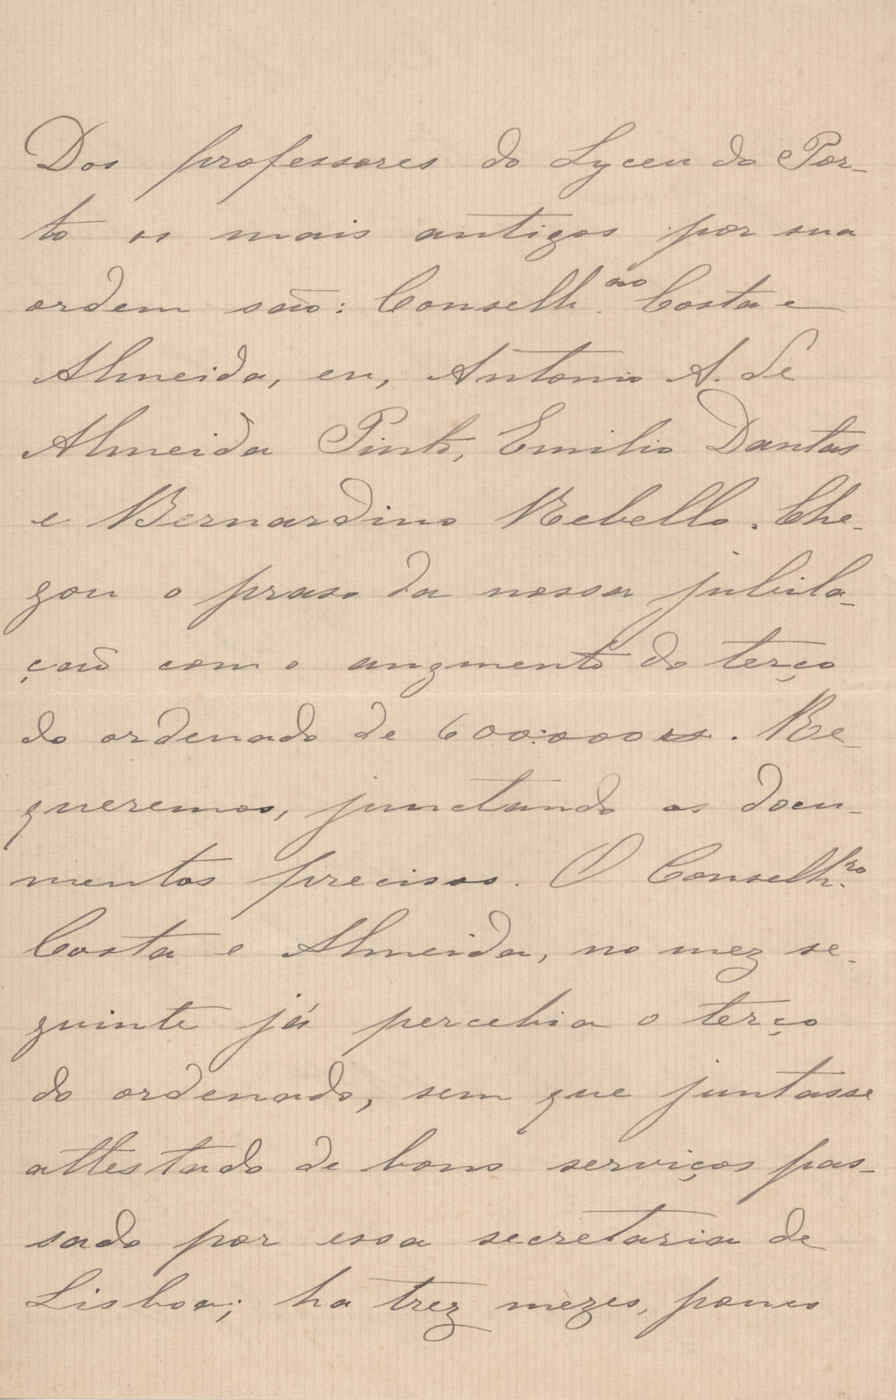 Dos professores do Lyceu do Por-
to os mais antigos por sua
ordem são: Conselh.ro Costa e
Almeida, eu, Antonio A. de
Almeida Pinto, Emilio Dantas
e Bernardino Rebello. Che-
gou o praso da nossa jubila-
ção com o augmento do terço
do ordenado de 600:000 rs. Re-
queremos, junctando os docu-
mentos precisos. O Conselh.ro
Costa e Almeida, no mez se-
guinte já percebia o terço
do ordenado, sem que juntasse
attestado de bons serviços pas-
sado por essa secretaria de
Lisboa; ha trez mezes, pouco